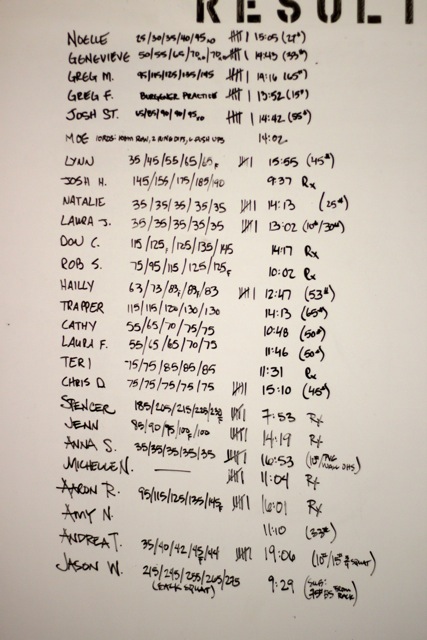 RESULT
NOELLE 25/30/35/40/45 15:05
GENEVIEVE 50/55/65/70/70 14:43 (33#)
GREG M. 95/115/125/135/145 14:16 (65#)
GREG F. BURGENER PRACTICE 13:52 (15#)
JOSH ST. 65/85/90/90/95 14:42 (55#)
MOE 10 RDS: 100M ROW, 2 RING DIPS, 4 PUSH UPS 14:02
LYNN 35/45/55/65/65F 15:55 (45#)
JOSH H. 145/155/175/185/190 9:37 Rx
NATALIE 35/35/35/35/35 14:13 (25#)
LAURA J. 35/35/35/35/35 13:02 (10#/30#)
DON C. 115/125F/125/135/145 14:17 Rx
ROB S. 75/95/115/125/125F 10:02 Rx
HAILLY 63/73/83F/83F/83 12:47 (53#)
TRAPPER 115/115/120/130/130 14:13 (65#)
CATHY 55/65/70/75/75 10:48 (50#)
LAURA F. 55/65/65/70/75 11:46 (50#)
TERI 75/75/85/85/85 11:31 Rx
CHRIS D 75/75/75/75/75 15:10 (45#)
SPENCER 185/205/215/225/230F 7:53 Rx
JENN 85/90/95/100F/100 14:19 Rx
ANNA S. 35/35/35/35/35 16:53
MICHELLE N. 11:04 Rx
AARON R. 95/115/125/135/145F 16:01 Rx
AMY N. 11:10 (33#)
ANDREA T. 35/40/42/45/44 19:06 (10#/15# SQUAT)
JASON W. 215/245/255/265/275 9:29
(BACK SQUAT) FROM RACK)